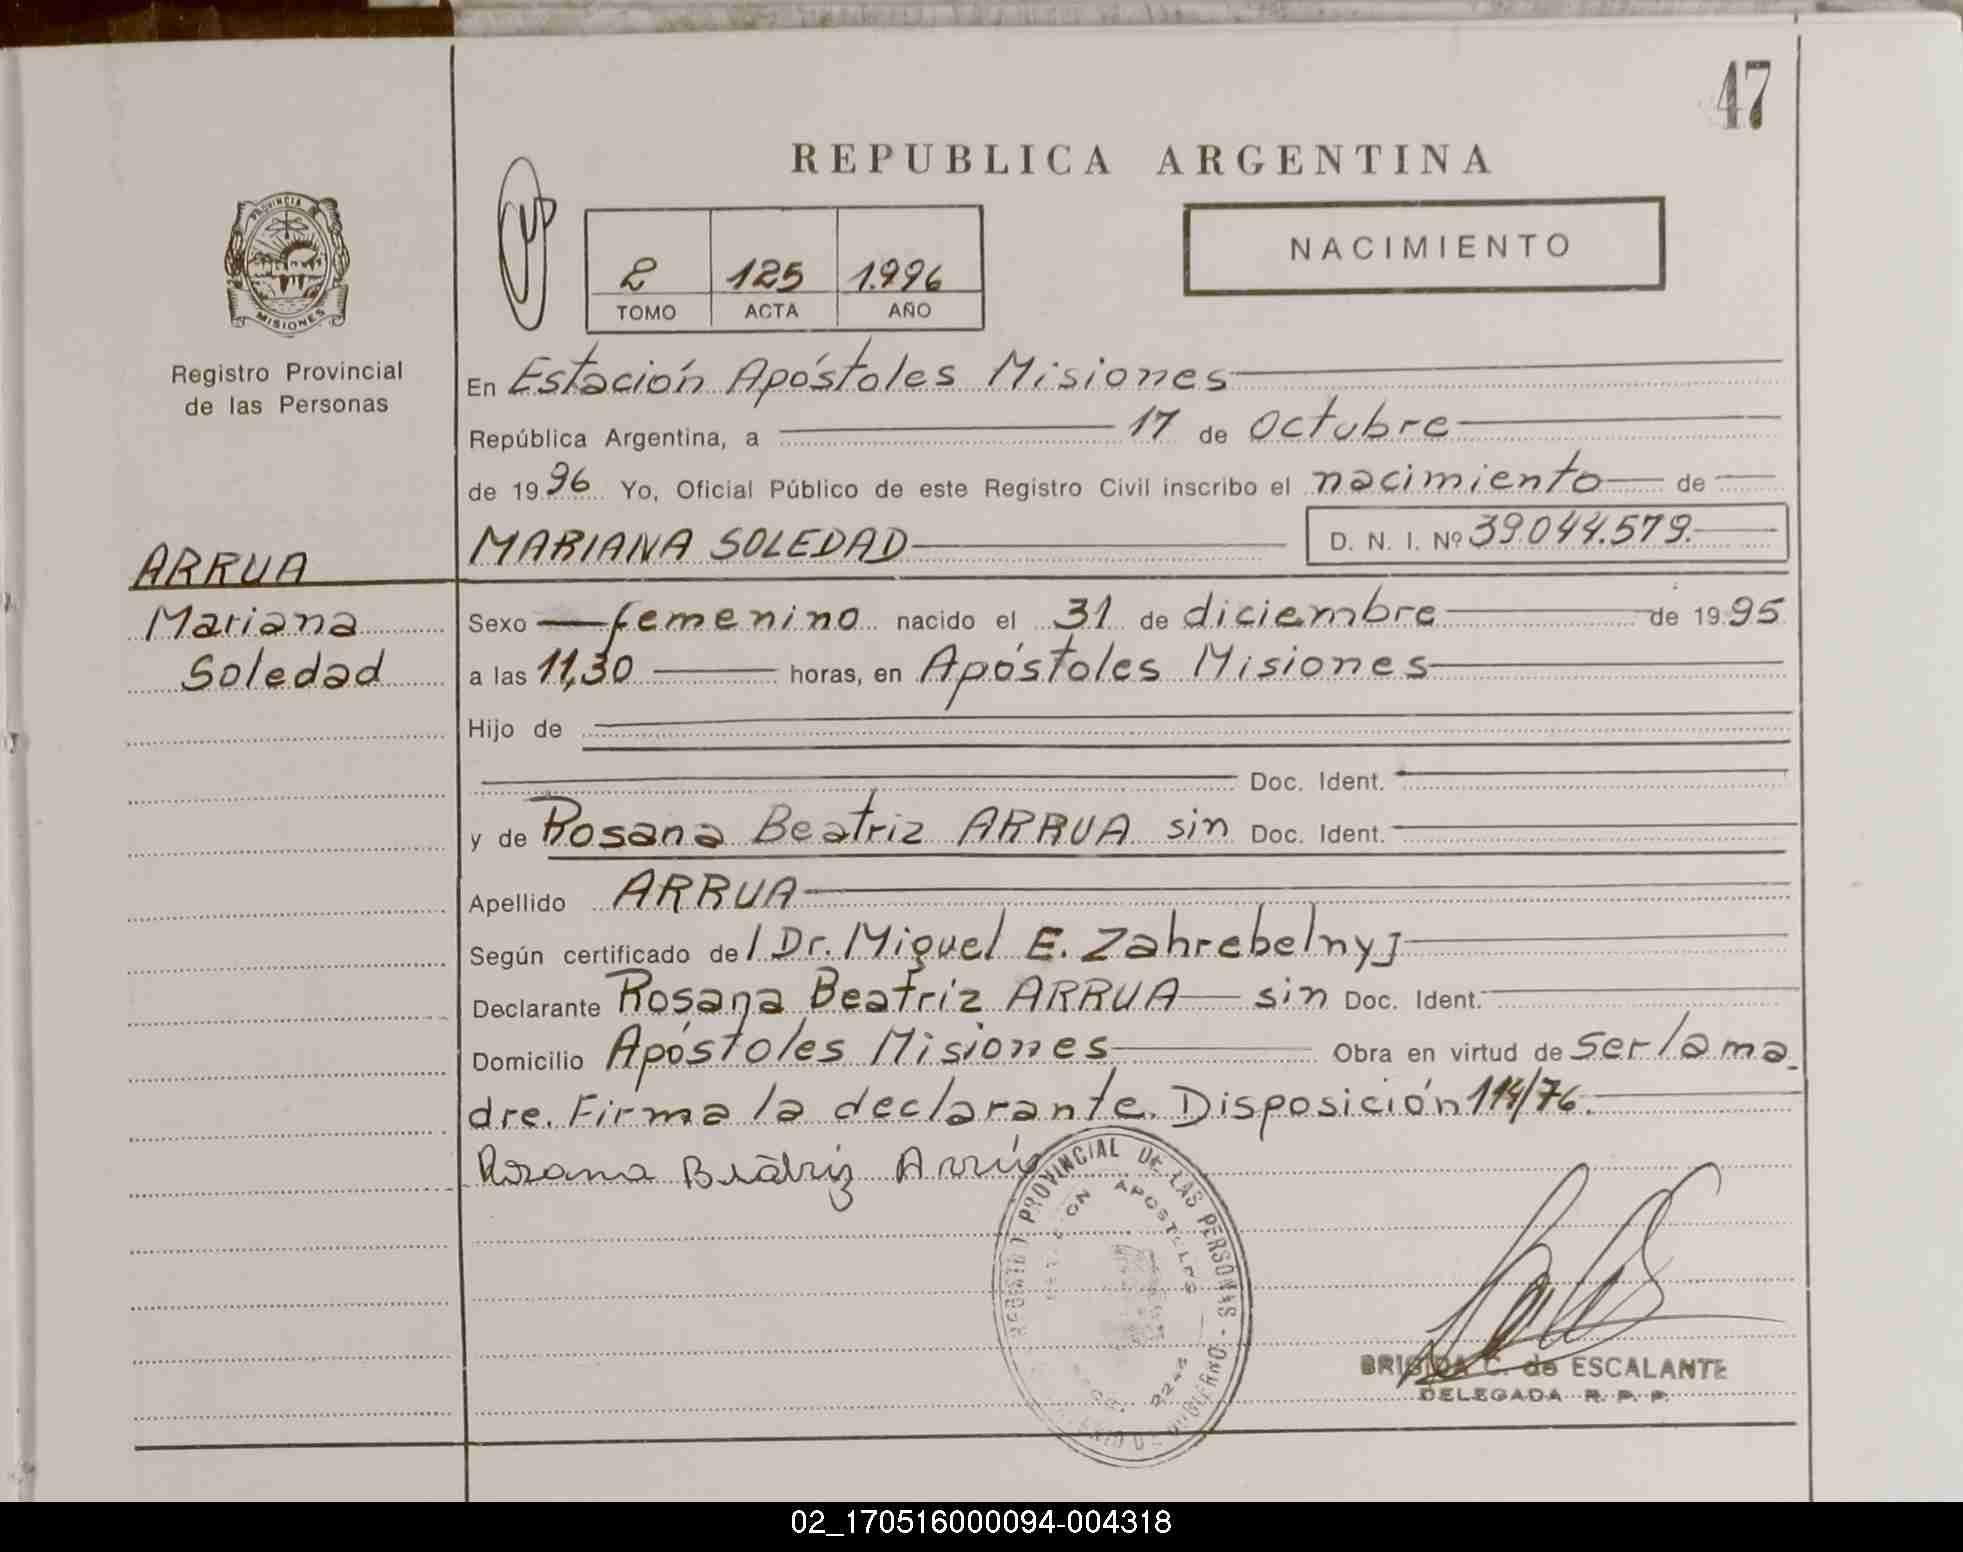 47
REPUBLICA ARGENTINA
PROVINCIA DE
MISIONES
Registro Provincial
de las Personas
2 125 1.996
TOMO ACTA AÑO
NACIMIENTO
En Estación Apóstoles Misiones
República Argentina, a 17 de octubre
de 1996 Yo, Oficial Público de este Registro Civil inscribo el nacimiento de
MARIANA SOLEDAD D. N. I. Nº 39.044.579.
ARRUA
Mariana
Soledad
Sexo femenino nacido el 31 de diciembre de 1995
a las 11,30 horas, en Apóstoles Misiones
Hijo de
Doc. Ident.
y de Rosana Beatriz ARRUA sin Doc. Ident.
Apellido ARRUA
Según certificado del Dr. Miguel E. Zahrebelnyj
Declarante Rosana Beatriz ARRUA sin Doc. Ident.
Domicilio Apóstoles Misiones Obra en virtud de ser la ma
dre. Firma la declarante. Disposición 114/76.
Rosana Beatriz Arrúa
PROVINCIAL DE LAS PERSONAS
APOSTOLES
BRIGIDA C. de ESCALANTE
DELEGADA R. P. P.
02_170516000094-004318